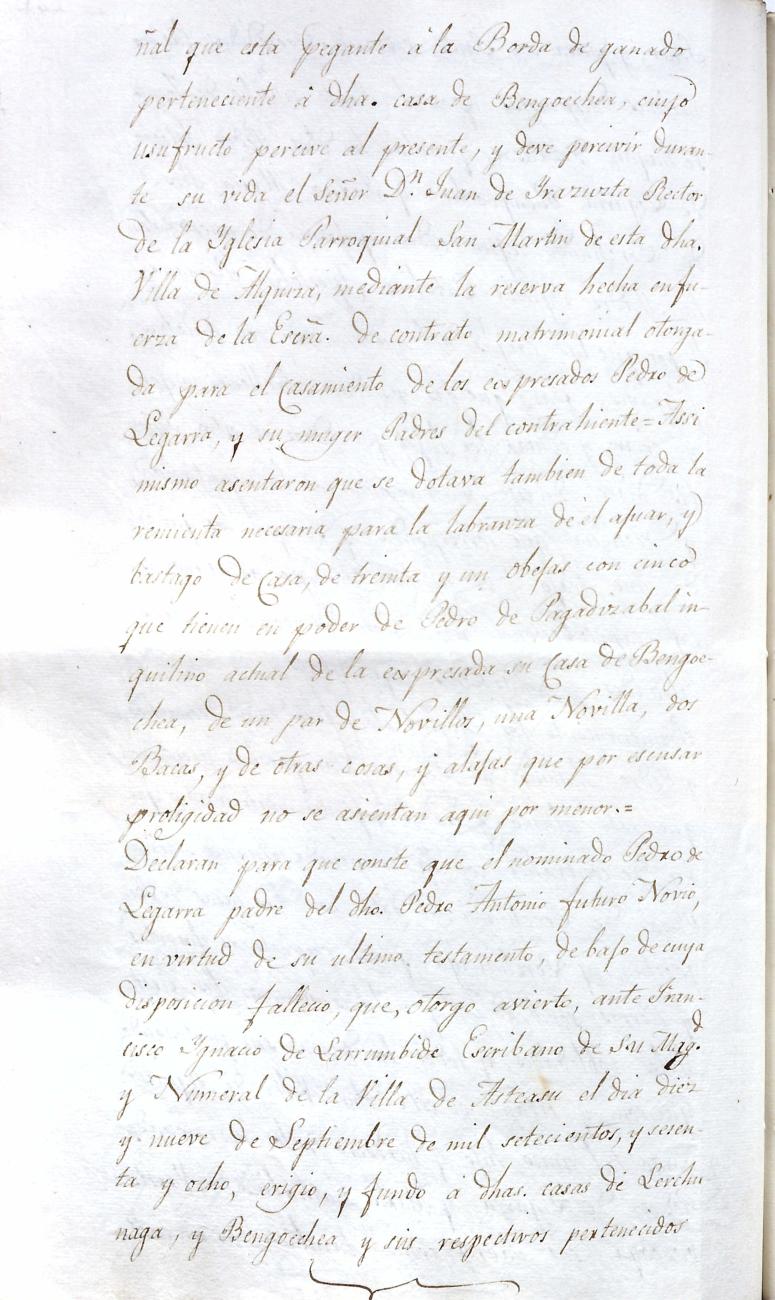 ñal que esta pegante â la Borda de ganado
perteneciente â dha. casa de Bengoechea, cuyo
usufructo percive al presente, y deve percivir duran-
te su vida el Señor Dn. Juan de Irazuzta Rector
de la Yglesia Parroquial San Martin de esta dha.
Villa de Alquiza, mediante la reserva hecha en fu-
erza de la Escrã. de contrato matrimonial otorga-
da para el Casamiento de los expresados Pedro de
Legarra, y su muger Padres del contrahiente = Assi
mismo asentaron que se dotava tambien de toda la
remienta necesaria para la labranza de el ajuar, y
bastago de Casa, de treinta y un obejas con cinco
que tienen en poder de Pedro de Pagadizabal in-
quilino actual de la expresada su Casa de Bengoe-
chea, de un par de Novillos, una Novilla, dos
Bacas, y de otras cosas, y alajas que por escusar
proligidad no se asientan aqui por menor.=
Declaran para que conste que el nominado Pedro de
Legarra padre del dho. Pedro Antonio futuro Novio,
en virtud de su ultimo testamento, de bajo de cuya
disposicion fallecio, que, otorgo avierto, ante Fran-
cisco Ygnacio de Larrumbide Escribano de Su Magd.
y Numeral de la Villa de Asteasu el dia diez
y nueve de Septiembre de mil setecientos, y sesen-
ta y ocho, erigio, y fundo â dhas. casas de Lerchu
naga, y Bengoechea y sus respectivos pertenecidos